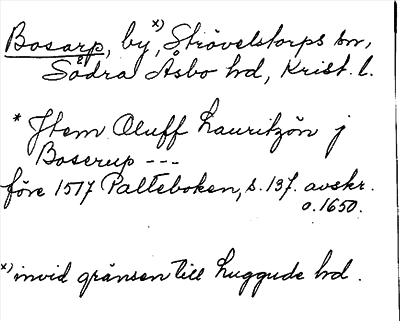 Bosarp, by x), Strövelstorps sn,
Södra Åsbo hd, Krist. l.
* Jtem Oluff Lauritzön j
Boserup ---
före 1517 Palteboken, s. 137. avskr.
o. 1650.
x) invid gränsen till Luggude hd.